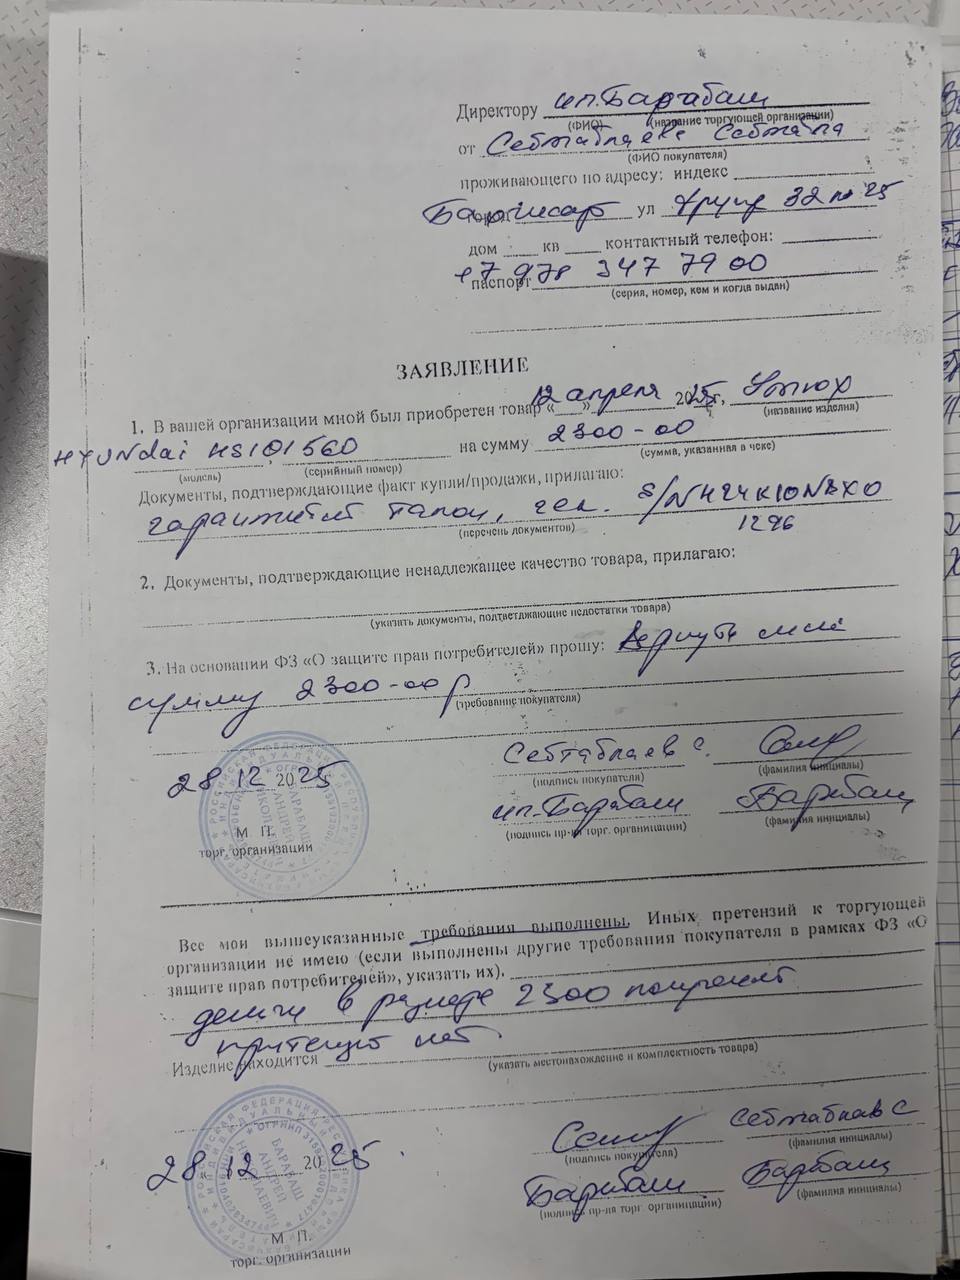 Директору ип. Барабаш
(ФИО) (название торгующей организации)
от Себтаблаева Себтабла
(ФИО покупателя)
проживающего по адресу: индекс
ул Фрунзе 32 25
дом кв контактный телефон:
+7 978 347 79 00
паспорт
(серия, номер, кем и когда выдан)
ЗАЯВЛЕНИЕ
1. В вашей организации мной был приобретен товар «12» апреля 2025г, Утюг
(название изделия)
HYUNdai HSI01560 на сумму 2300-00
(модель) (серийный номер) (сумма, указанная в чеке)
Документы, подтверждающие факт купли/продажи, прилагаю:
гарантийный талон, чек. S/N
1296
(перечень документов)
2. Документы, подтверждающие ненадлежащее качество товара, прилагаю:
(указать документы, подтветджающие недостатки товара)
3. На основании ФЗ «О защите прав потребителей» прошу: Вернуть мне
сумму 2300-00 р
(требование покупателя)
Себтаблаев С.
(подпись покупателя) (фамилия инициалы)
28 12 2025
ип. Барабаш Барабаш
(подпись пр-ля торг. организации) (фамилия инициалы)
М П.
торг. организации
Все мои вышеуказанные требования выполнены. Иных претензий к торгующей
организации не имею (если выполнены другие требования покупателя в рамках ФЗ «О
защите прав потребителей», указать их).
деньги в размере 2300
претензий нет.
Изделие находится
(указать местонахождение и комплектность товара)
Себтаблаев С
(подпись покупателя) (фамилия инициалы)
28 12 2025
Барабаш Барабаш
(подпись пр-ля торг организации) (фамилия инициалы)
М П.
торг. организации